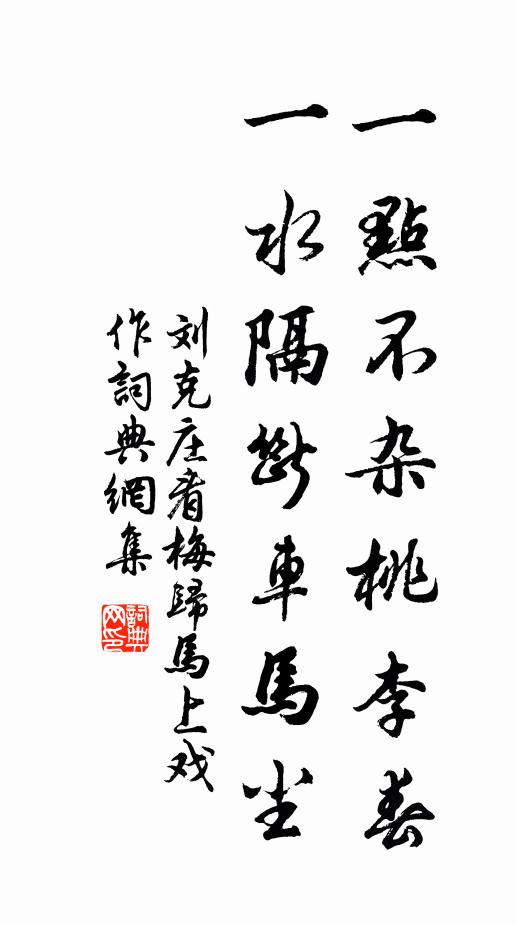 一點不杂桃李春
一水隔斷車馬尘
刘克庄看梅歸馬上戏
作詞典網集
詞典网印